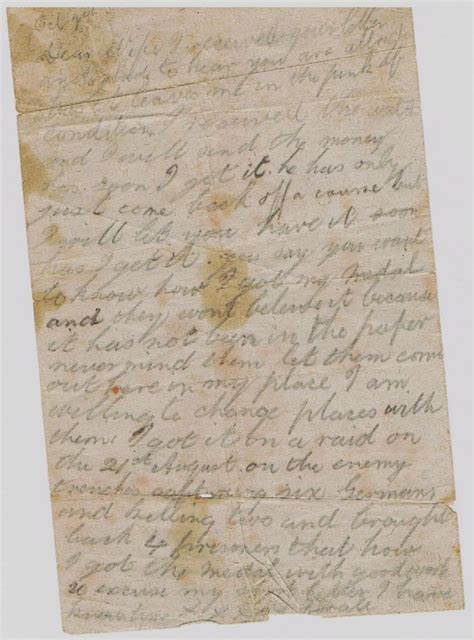 Oct 7st
Dear Wife I received your letter
and glad to hear you are alright
has it leaves me in the pink of
condition I received the
and I will send the money
has soon I get it. he has only
just come back off a course but
I will let you have it soon
has I get it. you say you want
to know how I got my medal
and they wont beleive it because
it has not been in the paper
never mind them let them come
out here in my place I am
willing to change places with
them. I got it on a raid on
the 21st August. on the enemy
trenches capturing six Germans
and killing two and brought
back 4 prisoners that how
I got the medal with good work
so excuse my letter I have